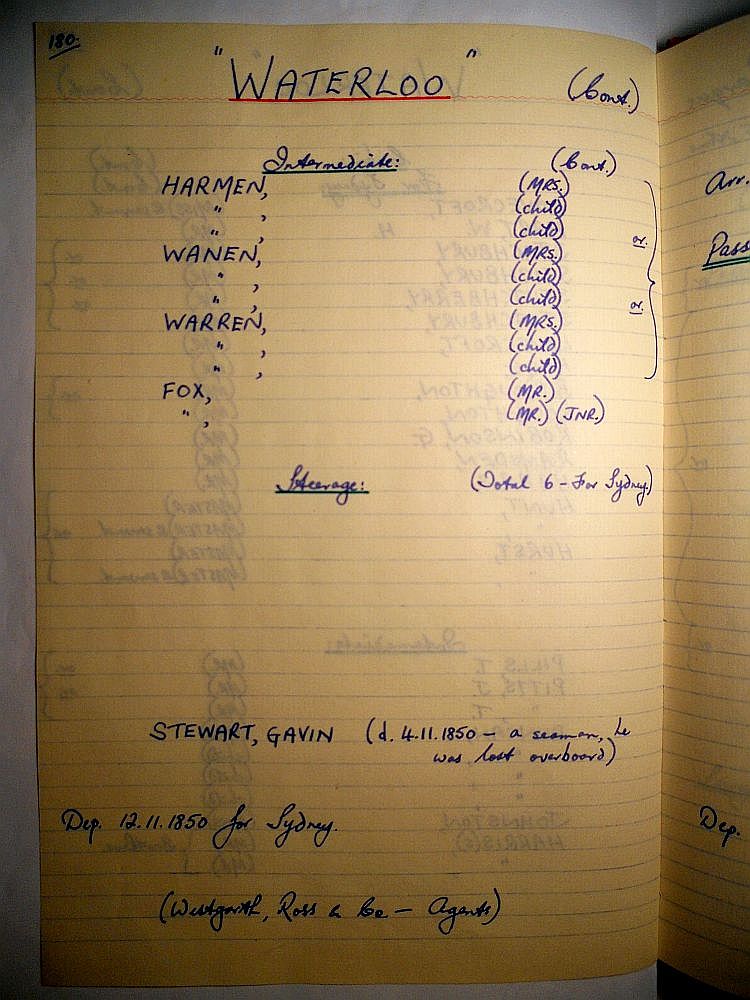 180.
"WATERLOO" (Cont.)
Intermediate: (Cont.)
HARMEN, (MRS.)
" , (child)
" , (child) or.
WANEN, (MRS.)
" , (child)
" , (child) or.
WARREN, (MRS.)
" , (child)
" , (child)
FOX, (MR.)
" , (MR.) (JNR.)
Steerage: (Total 6 - For Sydney.)
STEWART, GAVIN (d. 4.11.1850 - a seaman, he
was lost overboard)
Dep. 12.11.1850 for Sydney.
(Westgarth, Ross & Co - Agents)
Arr.
Pass
Dep.